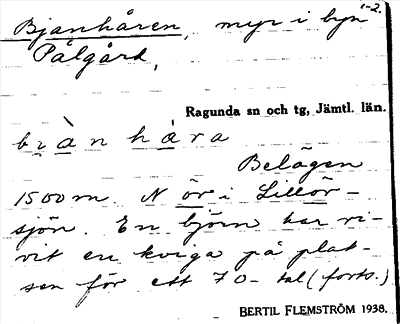 1-2.
Bjanhåren, myr i byn
Pålgård,
Ragunda sn och tg, Jämtl. län.
bi̯àn håra
Belägen
1500 m N ör i Lillör-
sjön. En björn har ri-
vit en kviga på plat-
sen för ett 70-tal (forts.)
BERTIL FLEMSTRÖM 1938.